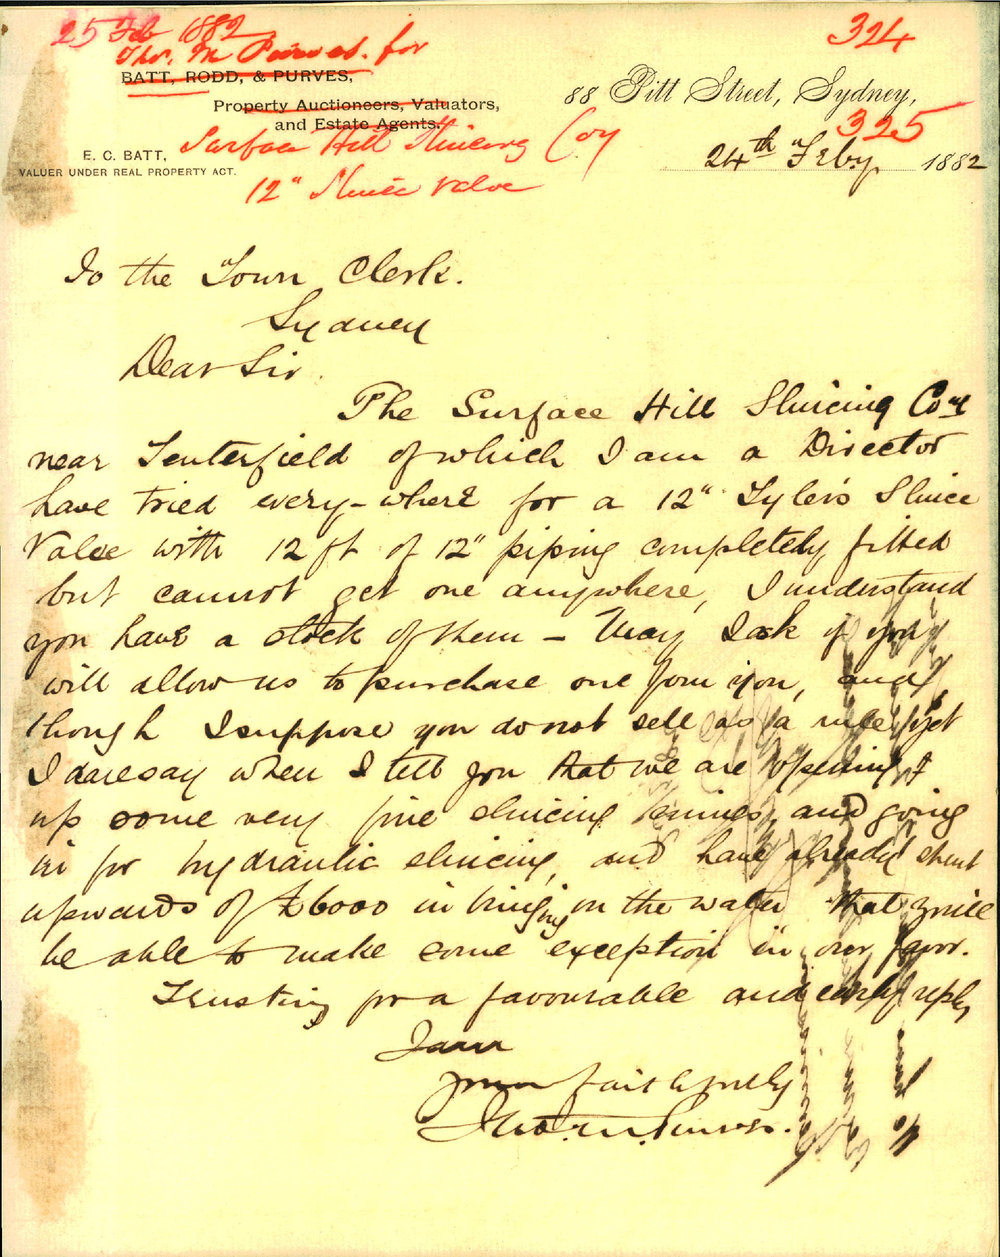 25 Feb 1882
324
Thos. M Purves. for
BATT, RODD, & PURVES,
88 Pitt Street, Sydney,
Property Auctioneers, Valuators,
325
and Estate Agents.
Surface Hill Sluicing Coy
24th Feby 1882
E. C. BATT,
VALUER UNDER REAL PROPERTY ACT.
12" Sluice Valve
To the Town Clerk.
Sydney
Dear Sir.
The Surface Hill Sluicing Coy
near Tenterfield of which I am a Director
have tried every-where for a 12" Tyler's Sluice
Valve with 12 ft of 12" piping completely fitted
but cannot get one anywhere, I understand
you have a stock of them - May I ask if you
will allow us to purchase one from you, and
though I suppose you do not sell as a rule, yet
I daresay when I tell you that we are opening
up some very fine sluicing mines, and going
in for hydraulic sluicing, and have already spent
upwards of £6000 in bringing on the water that you will
be able to make some exception in our favor.
Trusting for a favourable and early reply
I am
yours faithfully
Thos. M. Purves.